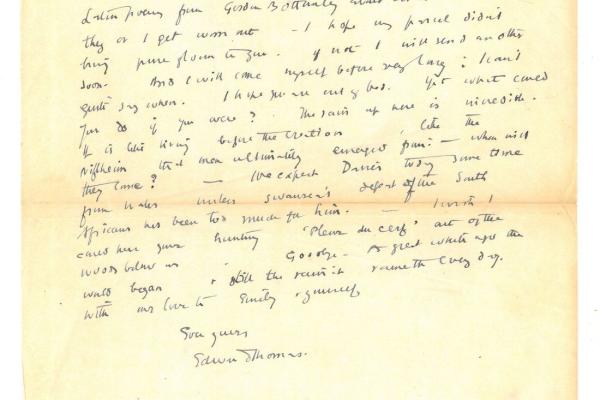 Latin poems from Gordon Bottomley
they or I get worn out — I hope my parcel didn't
bring pure gloom to you. If not I will send another
soon. And I will come myself before very long: I can't
quite say when. I hope you are not in bed. Yet what could
you do if you were? The rain up here is incredible.
It is like living before the creation, like the
Niflheim that men ultimately emerged from: — when will
they come? — We expect Davies today some time
from Wales unless Swansea's defeat of the South
Africans has been too much for him. — I wish I
could have gone hunting "Pleur du cerf" out of the
woods below us. Goodbye. A great while ago the
world began & still the rain it raineth every day.
With our love to Emily & yourself
Ever yours
Edward Thomas.